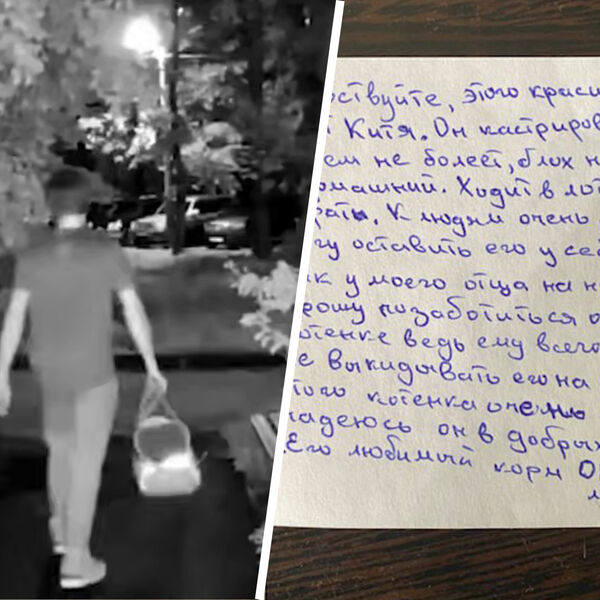 ствуйте, этого краси
Китя. Он кастриров
ем не болеет, блох н
омашний. Ходит в лот
рать. К людям очень
гу оставить его у се
ак у моего отца на н
рошу позаботиться о
тенке ведь ему всего
е выкидывать его на
того котенка очень
надеюсь он в добрых
Его любимый корм О